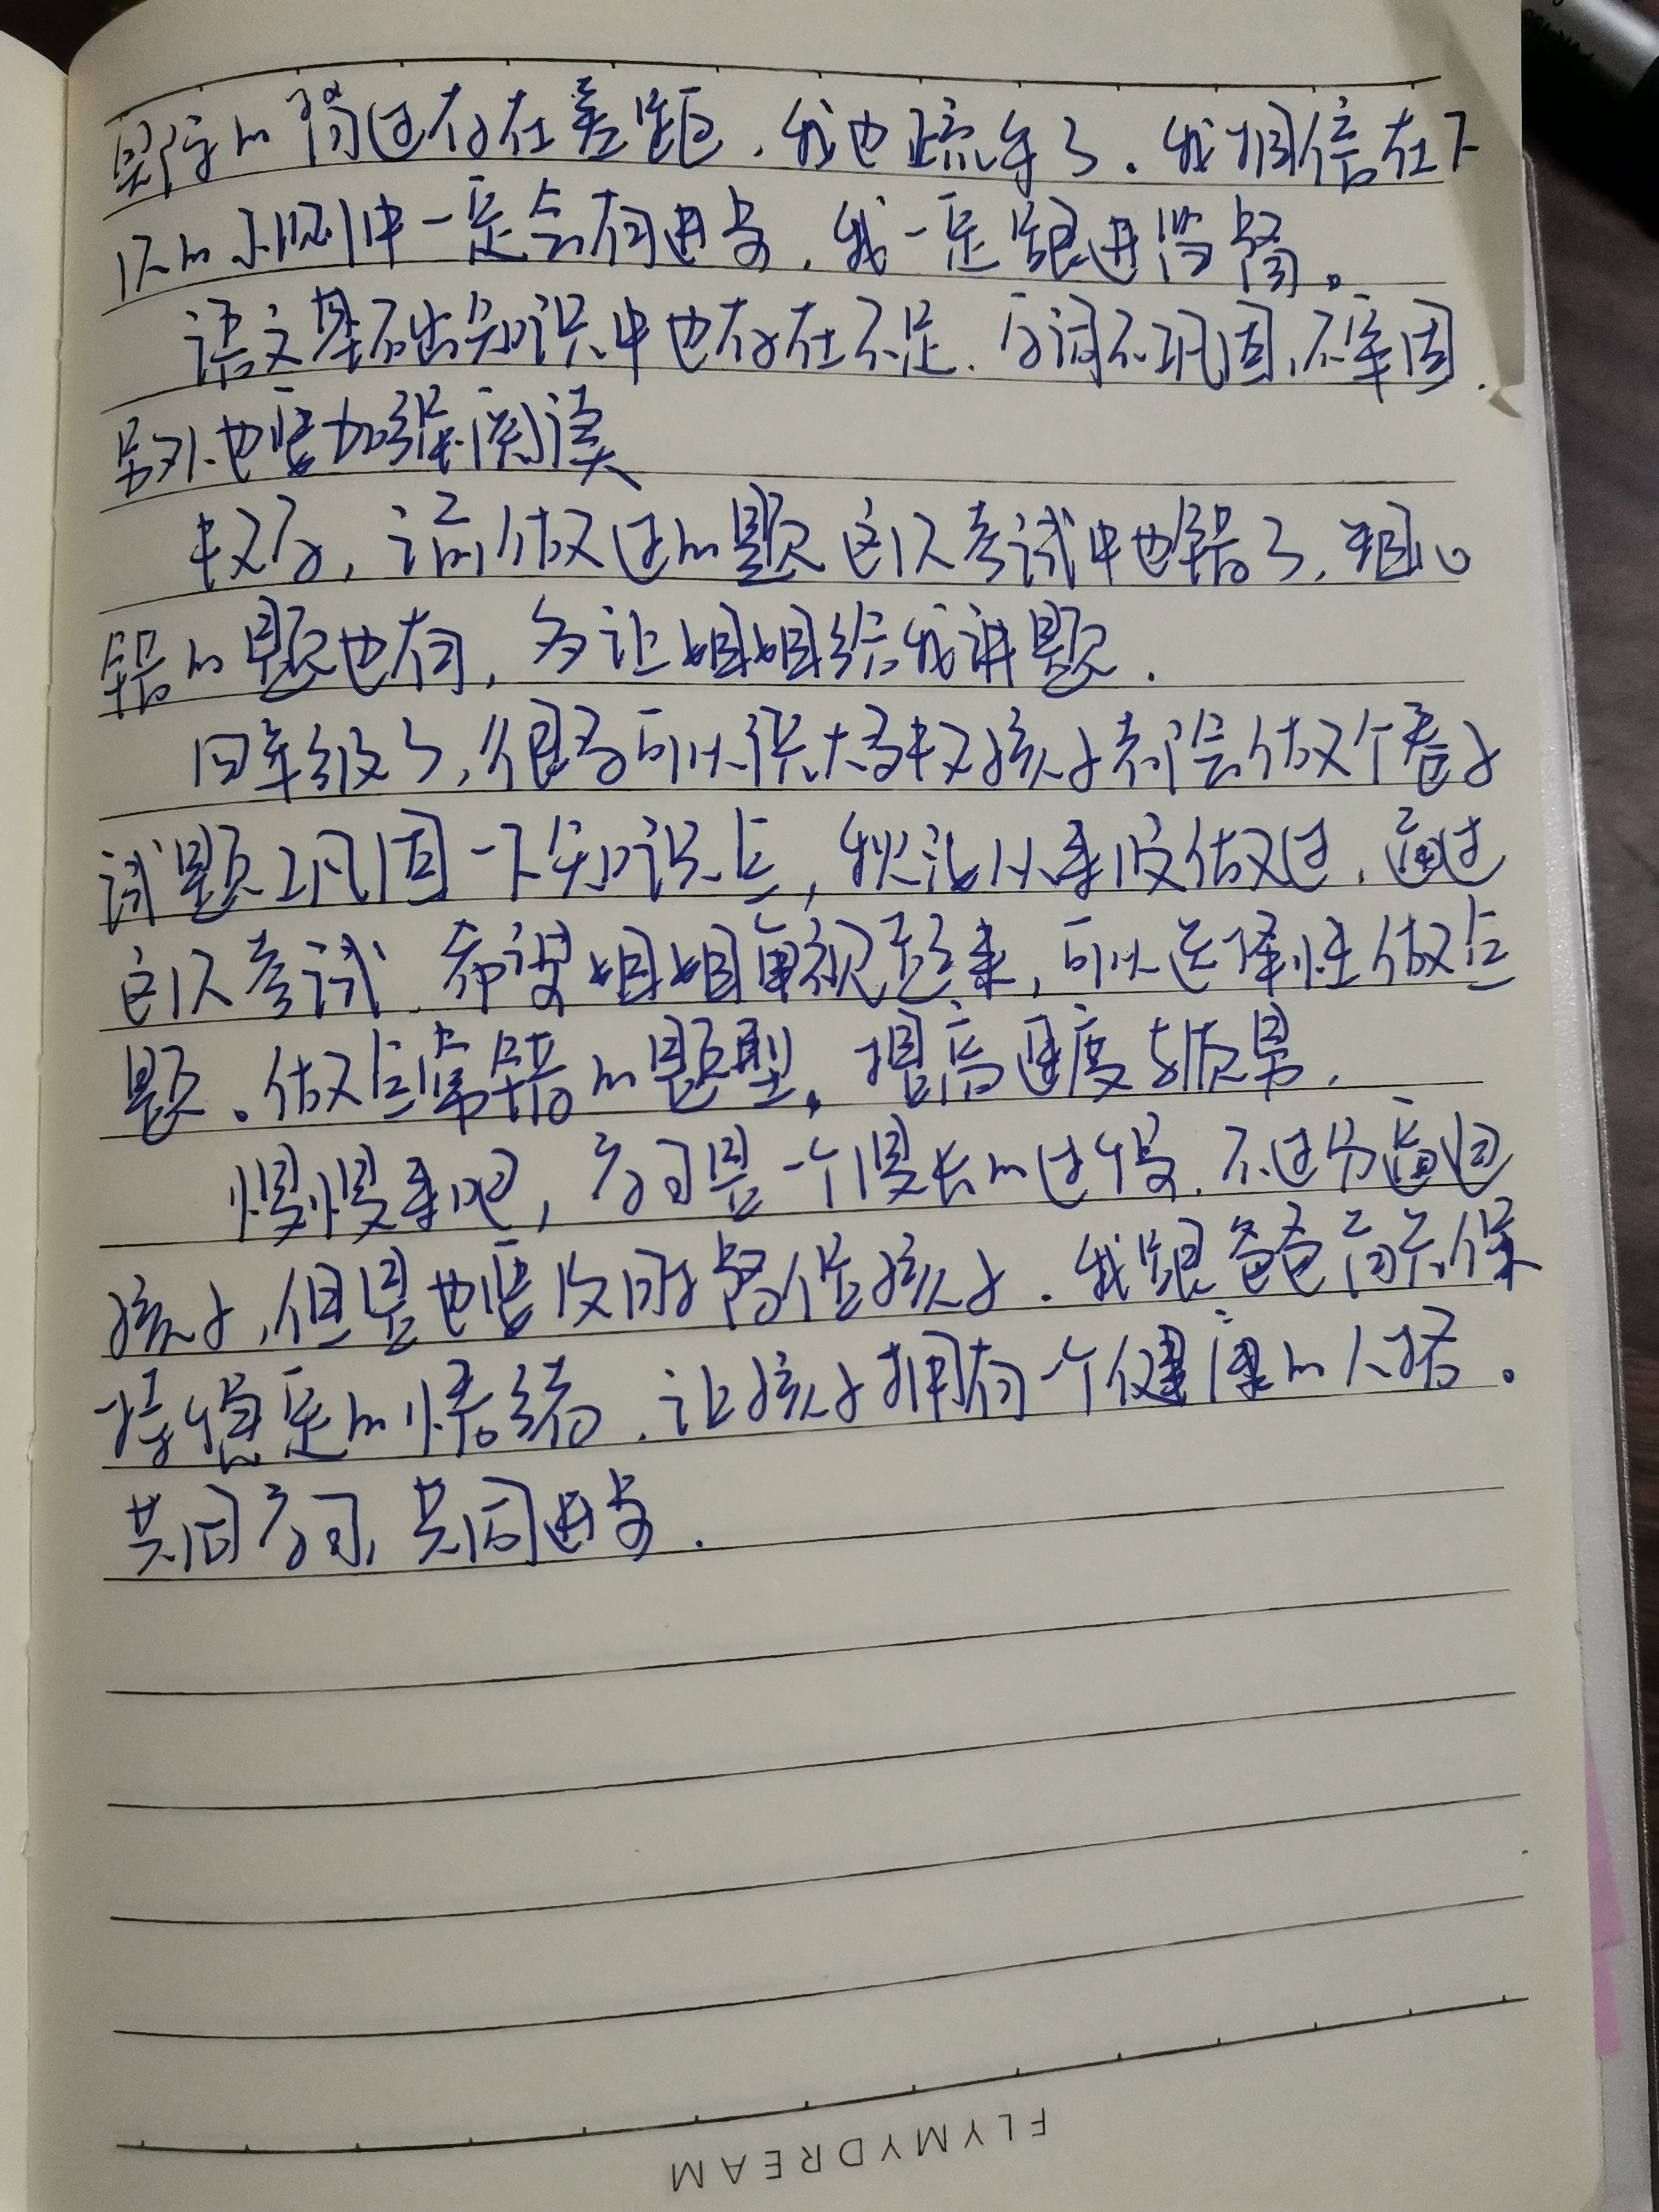 默写的背过存在差距，我也疏忽了．我相信在下
次的小测中一定会有进步，我一定跟进监督。
语文基础知识中也存在不足．字词不巩固，不牢固．
另外也要加强阅读
数学，说做过的题这次考试中也错了，粗心
错的题也有，多让姐姐给我讲题．
四年级了，很多可以说大多数孩子都会做个卷子
试题巩固一下知识点，我说从来没做过．通过
这次考试．希望姐姐重视起来，可以选择性做点
题。做点常错的题型。提高速度与质量．
慢慢来吧，学习是一个漫长的过程．不过分逼迫
孩子，但是也要及时督促孩子．我跟爸爸同样保
持稳定的情绪．让孩子拥有一个健康的人格。
共同学习，共同进步．
FLYMYDREAM